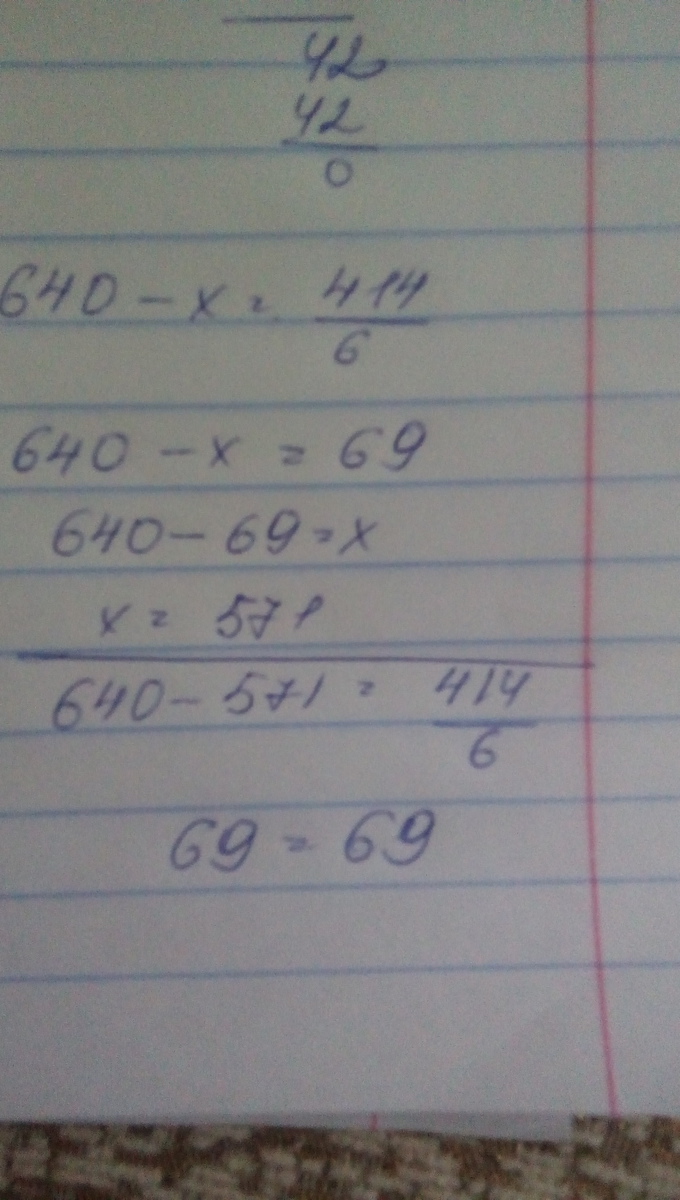 42
42
0
640 - x = 414
6
640 - x = 69
640 - 69 = x
x = 571
640 - 571 = 414
6
69 = 69